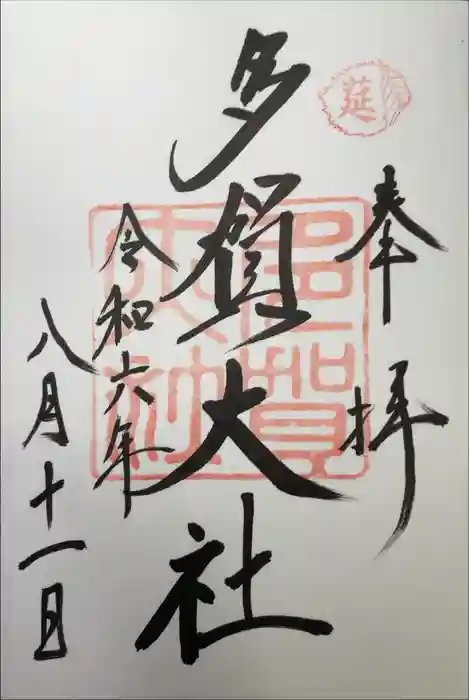 莚
奉拝
多賀大社
多賀大社
令和六年
八月十一日